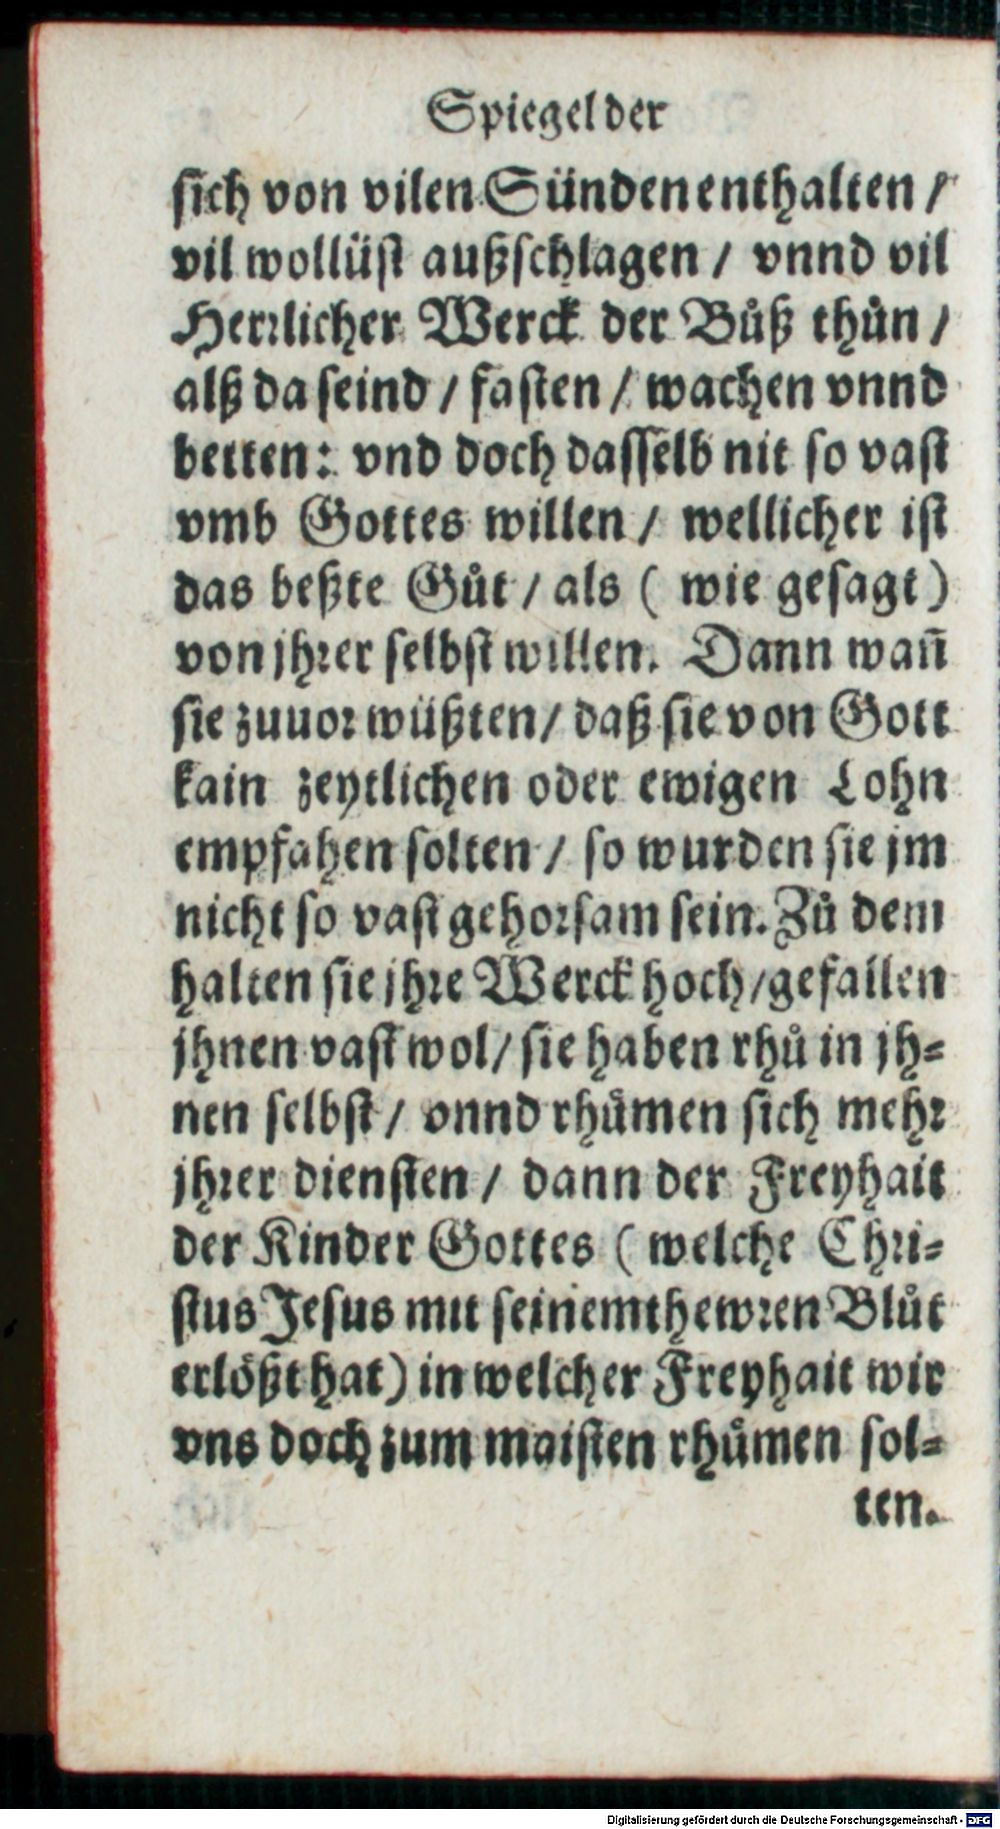 Spiegel der
sich von vilen Sünden enthalten /
vil wollüst außschlagen / vnnd vil
Herrlicher Werck der Bůß thůn /
alß da seind / fasten / wachen vnnd
betten: vnd doch dasselb nit so vast
vmb Gottes willen / wellicher ist
das beßte Gůt / als ( wie gesagt )
von jhrer selbst willen. Dann wañ
sie zuuor wüßten / daß sie von Gott
kain zeytlichen oder ewigen Lohn
empfahen solten / so wurden sie jm
nicht so vast gehorsam sein. Zů dem
halten sie jhre Werck hoch / gefallen
jhnen vast wol / sie haben rhů in jh=
nen selbst / vnnd rhůmen sich mehr
jhrer diensten / dann der Freyhait
der Kinder Gottes ( welche Chri=
stus Jesus mit seinem thewren Blůt
erlößt hat ) in welcher Freyhait wir
vns doch zum maisten rhůmen sol=
ten.
Digitalisierung gefördert durch die Deutsche Forschungsgemeinschaft - DFG